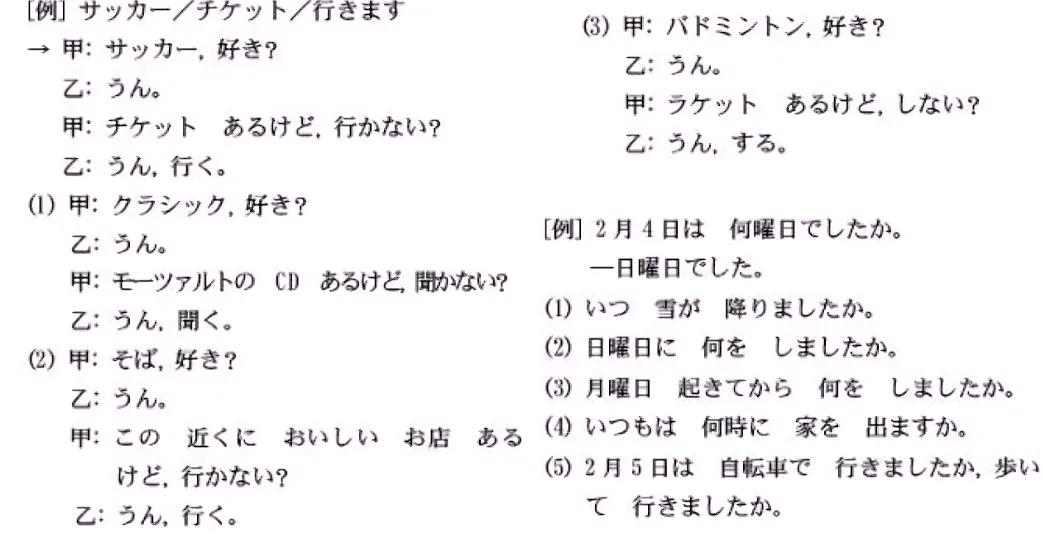 [例] サッカー／チケット／行きます
→ 甲: サッカー, 好き?
乙: うん。
甲: チケット　あるけど, 行かない?
乙: うん, 行く。
(1) 甲: クラシック, 好き?
乙: うん。
甲: モーツァルトの　CD　あるけど, 聞かない?
乙: うん, 聞く。
(2) 甲: そば, 好き?
乙: うん。
甲: この　近くに　おいしい　お店　ある
けど, 行かない?
乙: うん, 行く。
(3) 甲: バドミントン, 好き?
乙: うん。
甲: ラケット　あるけど, しない?
乙: うん, する。
[例] 2月4日は　何曜日でしたか。
—日曜日でした。
(1) いつ　雪が　降りましたか。
(2) 日曜日に　何を　しましたか。
(3) 月曜日　起きてから　何を　しましたか。
(4) いつもは　何時に　家を　出ますか。
(5) 2月5日は　自転車で　行きましたか, 歩い
て　行きましたか。